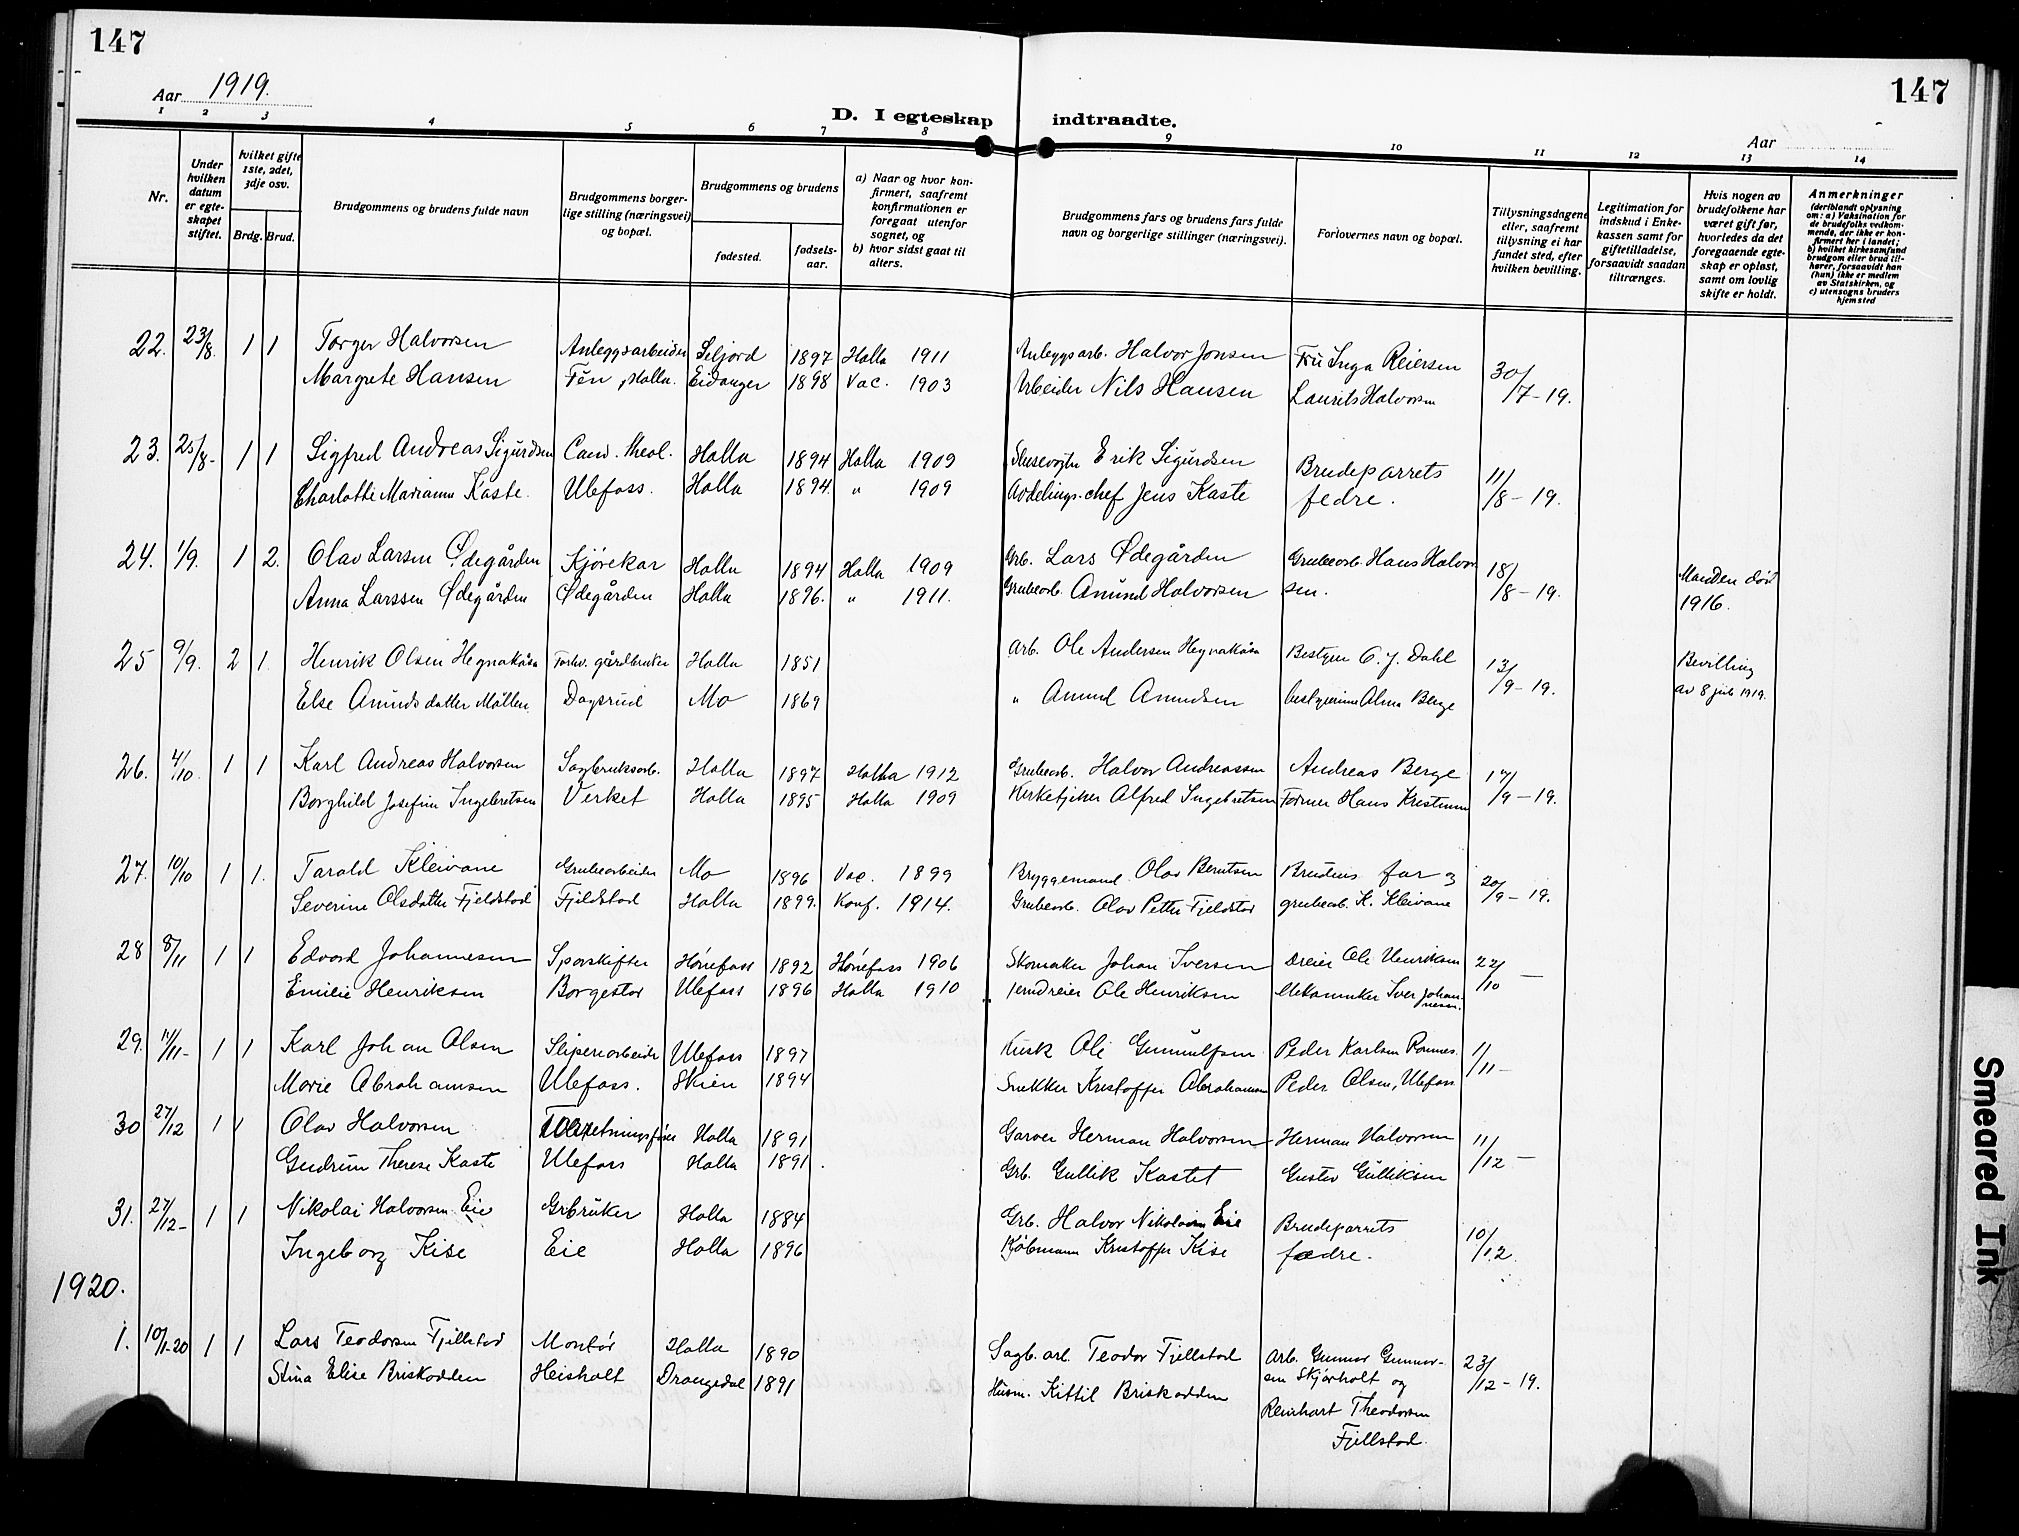 147
147
Aar 1919.
D. I egteskap indtraadte.
Aar
1 2 3 4 5 6 7 8 9 10 11 12 13 14
Nr.
Under hvilken datum er egteskapet stiftet.
hvilket gifte 1ste, 2det, 3dje osv.
Brdg. Brud.
Brudgommens og brudens fulde navn
Brudgommens borgerlige stilling (næringsvei) og bopæl.
Brudgommens og brudens
fødested.
fødselsaar.
a) Naar og hvor konfirmert, saafremt konfirmationen er foregaat utenfor sognet, og
b) hvor sidst gaat til alters.
Brudgommens fars og brudens fars fulde navn og borgerlige stillinger (næringsvei).
Forlovernes navn og bopæl.
Tillysningsdagene eller, saafremt tillysning ei har fundet sted, efter hvilken bevilling.
Legitimation for indskud i Enkekassen samt for giftetilladelse, forsaavidt saadan tiltrænges.
Hvis nogen av brudefolkene har været gift før, hvorledes da det foregaaende egteskap er opløst, samt om lovlig skifte er holdt.
Anmerkninger (deriblandt oplysning om: a) Vaksination for de brudefolks vedkommende, der ikke er konfirmert her i landet; b) hvilket kirkesamfund brudgom eller brud tilhører, forsaavidt han (hun) ikke er medlem av Statskirken, og c) utensogns bruders hjemsted
22. 23/8. 1 1 Torger Halvorsen Anleggsarbeider Seljord 1897 Holla 1911 Anleggsarb. Halvor Jonsen Fru Inga Reiersen 30/7-19.
Margrete Hansen Fen, Holla. Eidanger 1898 Vac. 1903 Arbeider Nils Hansen Laurits Halvorsen
23. 25/8- 1 1 Sigfred Andreas Sigurdsen Cand. theol. Holla 1894 Holla 1909 Slusevogter Erik Sigurdsen Brudeparrets 11/8-19.
Charlotte Marianne Kaste. Ulefoss. Holla 1894. " 1909 Avdelings-chef Jens Kaste fedre.
24. 1/9. 1 2. Olav Larsen Ødegården Kjørekar Holla 1894 Holla 1909 Grb. Lars Ødegården Grubearb. Hans Halvor 18/8-19.
Anna Larssen Ødegården Ødegården Holla 1896. " 1911. Grubearb. Amund Halvorsen sen. Manden død 1916.
25 9/9. 2 1. Henrik Olsen Hegnakåsa Forhv. gårdbruker Holla 1851 Arb. Ole Andersen Hegnakåsa Bestyrer O. J. Dahl 13/9-19. Bevilling
Else Amundsdatter Møllen. Dagsrud Mo 1869 " Amund Amundsen bestyrerinne Alma Berge av 8 juli 1919.
26. 4/10. 1 1 Karl Andreas Halvorsen Sagbruksarb. Holla 1897 Holla 1912 Grubearb. Halvor Andreassen Andreas Berge 17/9-19.
Borghild Josefine Ingebretsen Verket Holla 1895 Holla 1909 Kirketjener Alfred Ingebretsen Former Hans Kristensen
27. 10/10 1 1. Tarald Kleivane Grubearbeider Mo 1896 Vac. 1899 Bryggemand Olav Berntsen Brudens far og 20/9-19.
Severine Olsdatter Fjeldstad Fjeldstad Holla 1899. Konf. 1914. Grubearb. Olav Petter Fjeldstad grubearb. K. Kleivane
28 8/11 1 1 Edvard Johannesen Sporskifter Hønefoss 1892 Hønefoss 1906 Skomaker Johan Iversen Dreier Ole Henriksen 22/10 -
Emilie Henriksen Borgestad Ulefoss 1896 Holla 1910 Jerndreier Ole Henriksen Mekaniker Iver Johannesen.
29. 11/11- 1 1 Karl Johan Olsen Sliperiarbeider Ulefoss 1897 Kusk Ole Gunnulfsen Peder Karlsen Romnes. 1/11-
Marie Abrahamsen Ulefoss. Skien 1894 Snekker Kristoffer Abrahamsen Peder Olsen, Ulefoss
30 27/12 1 1 Olav Halvorsen Holla 1891 Garver Herman Halvorsen Herman Halvorsen 11/12-
Gudrun Therese Kaste Ulefoss Holla 1891. Grb. Gullik Kastet Gustav Gulliksen
31. 27/12- 1 1 Nikolai Halvorsen Eie Grbruker Holla 1884 Grb. Halvor Nikolaisen Eie Brudeparrets 10/12.
Ingeborg Kise Eie Holla 1896 Kjøbmann Kristoffer Kise fædre.
1920.
1. 10/1-20 1 1 Lars Teodorsen Fjellstad Montør Holla 1890 Sagb. arb. Teodor Fjellstad Arb. Gunnar Gunnar- 23/12-19.
Stina Elise Briskodden Heisholt Drangedal 1891 Husm. Kittil Briskodden sen Skjørholt og
Reinhart Theodorsen
Fjellstad.
Smeared Ink